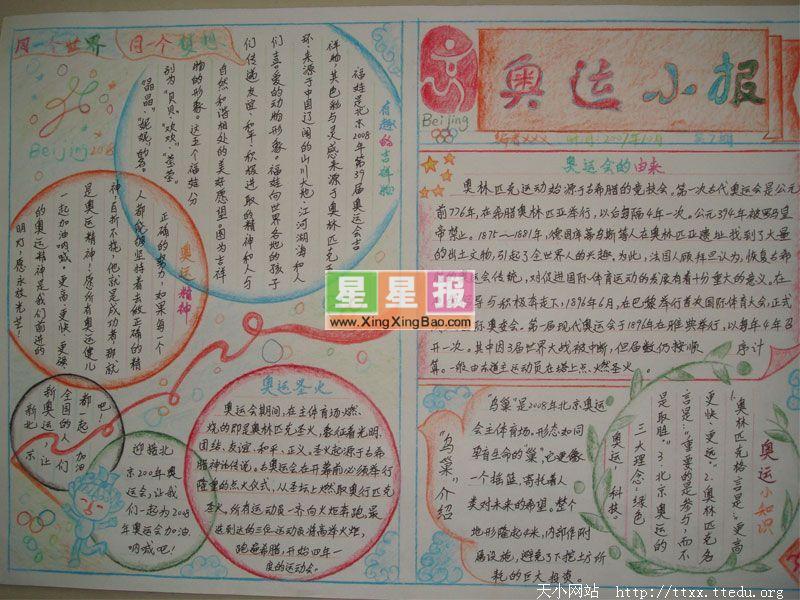 同一个世界 同一个梦想
Beijing 2008
有趣的吉祥物
福娃是北京2008年第29届奥运会吉
祥物,其色彩与灵感来源于奥林匹克五
环,来源于中国辽阔的山川大地、江河湖海和人
们喜爱的动物形象。福娃向世界各地的孩子
们传递友谊、和平、积极进取的精神和人与
自然和谐相处的美好愿望。因为吉祥
物的形象。这五个福娃分
别为"贝贝、欢欢、
晶晶""妮妮"的名。
奥运精神
正确的努力,如果每一个
人都能够坚持着去做正确的精
神,百折不挠,他就是成功者,那就
是奥运精神!愿所有奥运健儿
一起加油呐喊。更高、更快、更强
的奥运精神是我们前进的
明灯,愿永放光芒!
吧!
都一起加油
全国的人们
新奥运,让
新北京
迎接北
京2008年奥
运会,让我
们一起为2008
年奥运会加油
呐喊吧!
奥运圣火
奥运会期间,在主体育场燃
烧的即是奥林匹克圣火,象征着光明、
团结、友谊、和平、正义。圣火起源于古希
腊神话传说。古奥运会在开幕前必须举行
隆重的点火仪式,从圣坛上燃取奥行匹克
圣火,所有运动员一齐向火炬奔跑,最
先到达的三位运动员将高举火炬,
跑遍希腊,开始四年一
度的运动会。
Beijing
奥运小报
编者XXX
第2期
奥运会的由来
奥林匹克运动始源于古希腊的竞技会。第一次古代奥运会是公元
前776年,在希腊奥林匹亚举行,以后每隔4年一次。公元394年被罗马皇
帝禁止。1875—1881年,德国库蒂乌斯等人在奥林匹亚遗址找到了大量
的出土文物,引起了全世界人的兴趣。为此,法国人顾拜旦认为,恢复古希
运会传统,对促进国际体育运动的发展有着十份重大的意义。在
导与积极奔走下,1894年6月,在巴黎举行首次国际体育大会,正式
际奥委会。第一届现代奥运会于1896年在雅典举行,以每年4年召
开一次。其中因3届世界大战被中断,但届数仍按顺序计
算。一般由古道主运动员在塔上点、燃圣火。
"鸟巢"介绍
"鸟巢"是2008年北京奥运
会主体育场。形态如同
孕育生命的"巢",它更像
一个摇篮,寄托着人
类对未来的希望。整个
地形隆起4米,内部作附
属设施,避免了下挖土方所
耗的巨大投资。
奥运小知识
1.奥林匹克格言是:更高、
更快、更远。2.奥林匹克名
言是:"重要的是参与,而不
是取胜。"3.北京奥运的
三大理念:绿色
奥运、科技
星星报
www.XingXingBao.com
天小网站 http://ttxx.ttedu.org